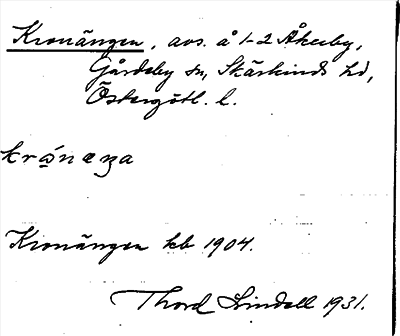 Kronängen, avs. å 1-2 Åkerby,
Gårdeby sn, Skärkinds hd,
Östergötl. l.
Kronängen kb 1904.
Thord Lindell 1931.